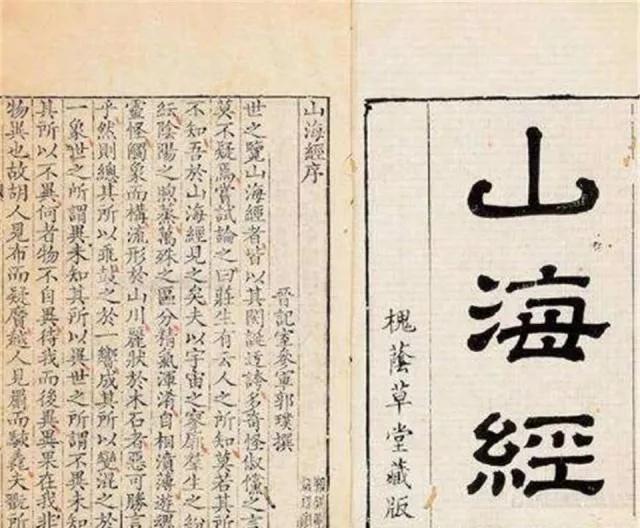 山海經
槐蔭草堂藏版
山海經序
晉記室參軍郭璞撰
世之覽山海經者皆以其閎誕迂誇多奇怪俶儻之言
莫不疑焉嘗試論之曰莊生有云人之所知莫若其所
不知吾於山海經見之矣夫以宇宙之寥廓羣生之紛
紜陰陽之煦蒸萬殊之區分精氣渾淆自相濆薄遊魂
靈怪觸象而構流形於山川麗狀於木石者惡可勝言
乎然則總其所以乖鼓之於一響成其所以變混之於
一象世之所謂異未知其所以異世之所謂不異未知
其所以不異何者物不自異待我而後異異果在我非
物異也故胡人見布而疑黂越人見罽而駭毳夫翫所